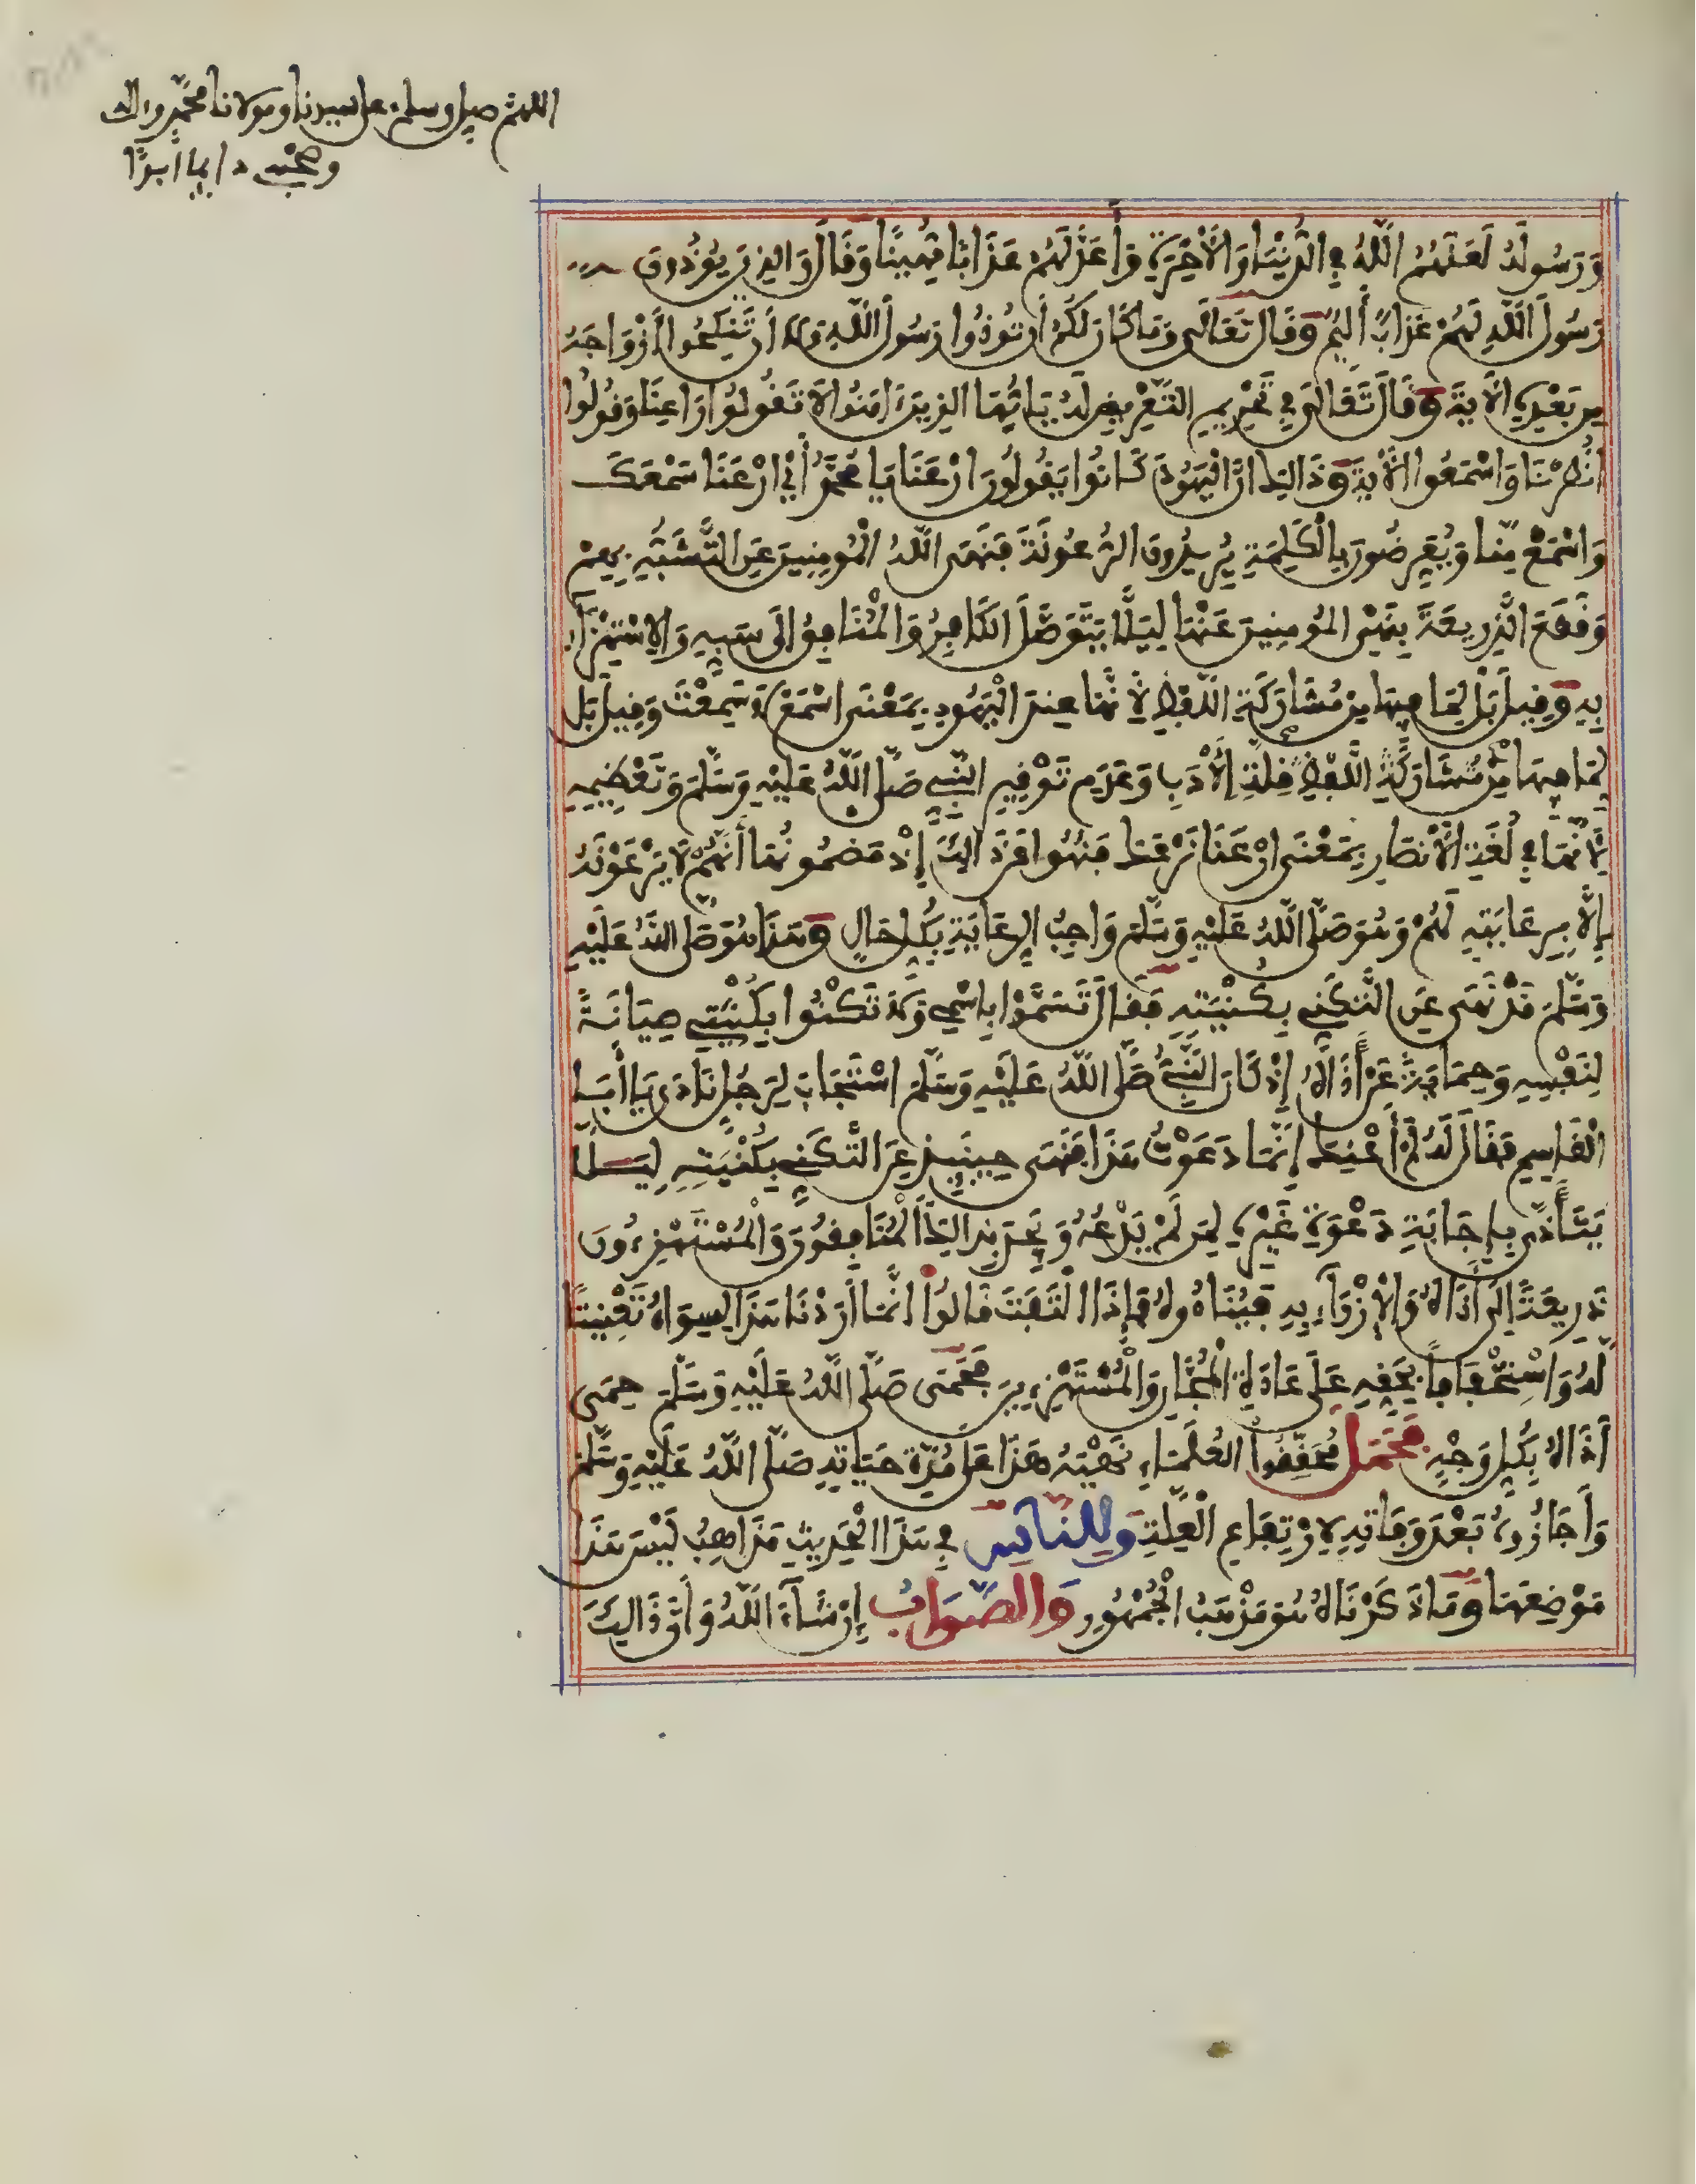 اللهم صل وسلم على سيدنا ومولانا محمد واله
وصحبه دايما أبدًا
وَرَسُولَهُ لَعَنَهُمُ اللَّهُ فِي الدُّنْيَا وَالْأَخِرَةِ وَأَعَدَّ لَهُمْ عَذَابًا مُّهِينًا وَقَالَ وَالَّذِينَ يُوذُونَ
رَسُولَ اللَّهِ لَهُمْ عَذَابٌ أَلِيمٌ وَقَالَ تَعَالَى وَمَا كَانَ لَكُمْ أَن تُوذُوا رَسُولَ اللَّهِ وَلَا أَن تَنكِحُوا أَزْوَاجَهُ
مِن بَعْدِهِ الْآيَةَ وَقَالَ تَعَالَى فِي تَحْرِيمِ التَّعْرِيضِ لَهُ يَا أَيُّهَا الَّذِينَ ءَامَنُوا لَا تَقُولُوا رَاعِنَا وَقُولُوا
انْظُرْنَا وَاسْمَعُوا الْآيَةَ وَذَالِكَ أَنَّ الْيَهُودَ كَانُوا يَقُولُونَ ارْعَنَا يَا مُحَمَّدُ أَيِ ارْعَنَا سَمْعَكَ
وَاسْمَعْ مِنَّا وَيُعَرِّضُونَ بِالْكَلِمَةِ يُرِيدُونَ الرُّعُونَةَ فَنَهَى اللَّهُ الْمُومِنِينَ عَنِ التَّشَبُّهِ بِهِمْ
وَقَطَعَ الذَّرِيعَةَ بِنَهْيِ الْمُومِنِينَ عَنْهَا لِيَلَّا يَتَوَصَّلَ الْكَافِرُ وَالْمُنَافِقُ إِلَى سَبِّهِ وَالِاسْتِهْزَاءِ
بِهِ وَقِيلَ بَلْ لِمَا فِيهَا مِنْ مُشَارَكَةِ اللَّفْظِ لِأَنَّهَا عِندَ الْيَهُودِ بِمَعْنَى اسْمَعْ لَا سَمِعْتَ وَقِيلَ بَلْ
لِمَا فِيهَا مِنْ مُشَارَكَةِ اللَّفْظِ قِلَّةِ الْأَدَبِ وَعَدَمِ تَوْقِيرِ النَّبِيِّ صَلَّى اللَّهُ عَلَيْهِ وَسَلَّمَ وَتَعْظِيمِهِ
لِأَنَّهَا فِي لُغَةِ الْأَنْصَارِ بِمَعْنَى ارْعَنَا نَرْعَكَ فَنُهُوا عَن ذَالِكَ إِذْ مَضْمُونُهَا أَنَّهُمْ لَا يَرْعَوْنَهُ
إِلَّا بِرِعَايَتِهِ لَهُمْ وَهُوَ صَلَّى اللَّهُ عَلَيْهِ وَسَلَّمَ وَاجِبُ الرِّعَايَةِ بِكُلِّ حَالٍ وَهَذَا هُوَ صَلَّى اللَّهُ عَلَيْهِ
وَسَلَّمَ قَدْ نَهَى عَنِ التَّكَنِّي بِكُنْيَتِهِ فَقَالَ تَسَمَّوْا بِاسْمِي وَلَا تَكْنُوا بِكُنْيَتِي صِيَانَةً
لِنَفْسِهِ وَحِمَايَةً عَنْ أَذَاهُ إِذْ كَانَ النَّبِيُّ صَلَّى اللَّهُ عَلَيْهِ وَسَلَّمَ اسْتَجَابَ لِرَجُلٍ نَادَى يَا أَبَا
الْقَاسِمِ فَقَالَ لَهُ لَمْ أَعْنِكَ إِنَّمَا دَعَوْتُ هَذَا فَنَهَى حِينَئِذٍ عَنِ التَّكَنِّي بِكُنْيَتِهِ لِيَلَّا
يَتَأَذَّى بِإِجَابَةِ دَعْوَةِ غَيْرِهِ لِمَن لَّمْ يَدْعُهُ وَيَجِدَ بِذَالِكَ الْمُنَافِقُونَ وَالْمُسْتَهْزِءُونَ
ذَرِيعَةً إِلَى أَذَاهُ وَالْإِزْرَاءِ بِهِ فَيُنَادُوهُ فَإِذَا الْتَفَتَ قَالُوا إِنَّمَا أَرَدْنَا هَذَا لِسِوَاهُ تَعْنِيتًا
لَهُ وَاسْتِخْفَافًا بِحَقِّهِ عَلَى عَادَةِ الْمُجَّانِ وَالْمُسْتَهْزِءِينَ فَحَمَى صَلَّى اللَّهُ عَلَيْهِ وَسَلَّمَ حِمَى
أَذَاهُ بِكُلِّ وَجْهٍ فَحَمَلَ مُحَقِّقُوا الْعُلَمَاءِ نَهْيَهُ هَذَا عَلَى مُدَّةِ حَيَاتِهِ صَلَّى اللَّهُ عَلَيْهِ وَسَلَّمَ
وَأَجَازُوهُ بَعْدَ وَفَاتِهِ لِارْتِفَاعِ الْعِلَّةِ وَلِلنَّاسِ فِي هَذَا الْحَدِيثِ مَذَاهِبُ لَيْسَ هَذَا
مَوْضِعَهَا وَمَا ذَكَرْنَاهُ هُوَ مَذْهَبُ الْجُمْهُورِ وَالصَّوَابُ إِن شَاءَ اللَّهُ وَأَنَّ ذَالِكَ